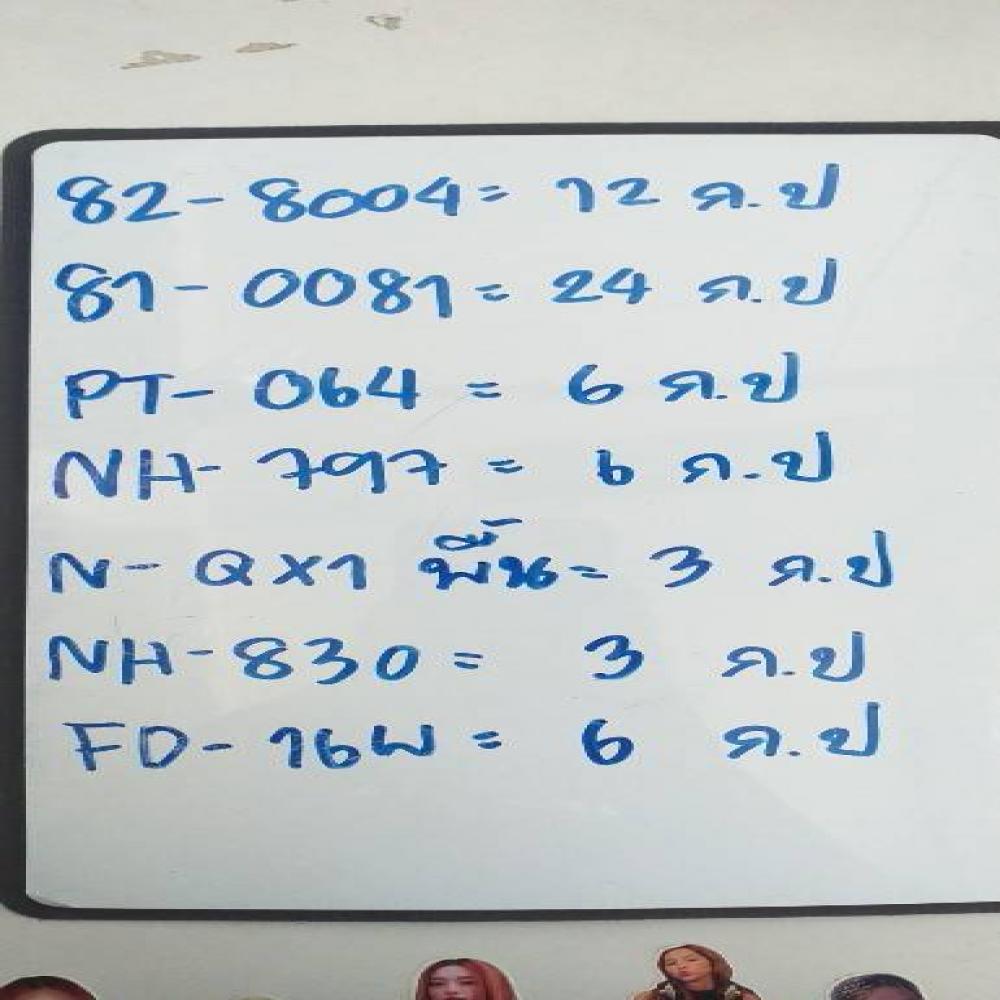 82-8004= 12 ค.ป
81-0081= 24 ค.ป
PT-064 = 6 ค.ป
NH-797 = 6 ค.ป
N-QX1 พื้น= 3 ค.ป
NH-830 = 3 ค.ป
FD-16W = 6 ค.ป